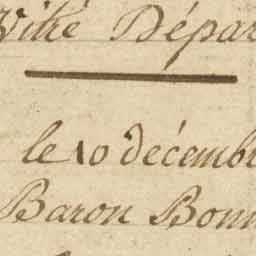 Vitré Dépar
le 10 décemb
Baron Bonn